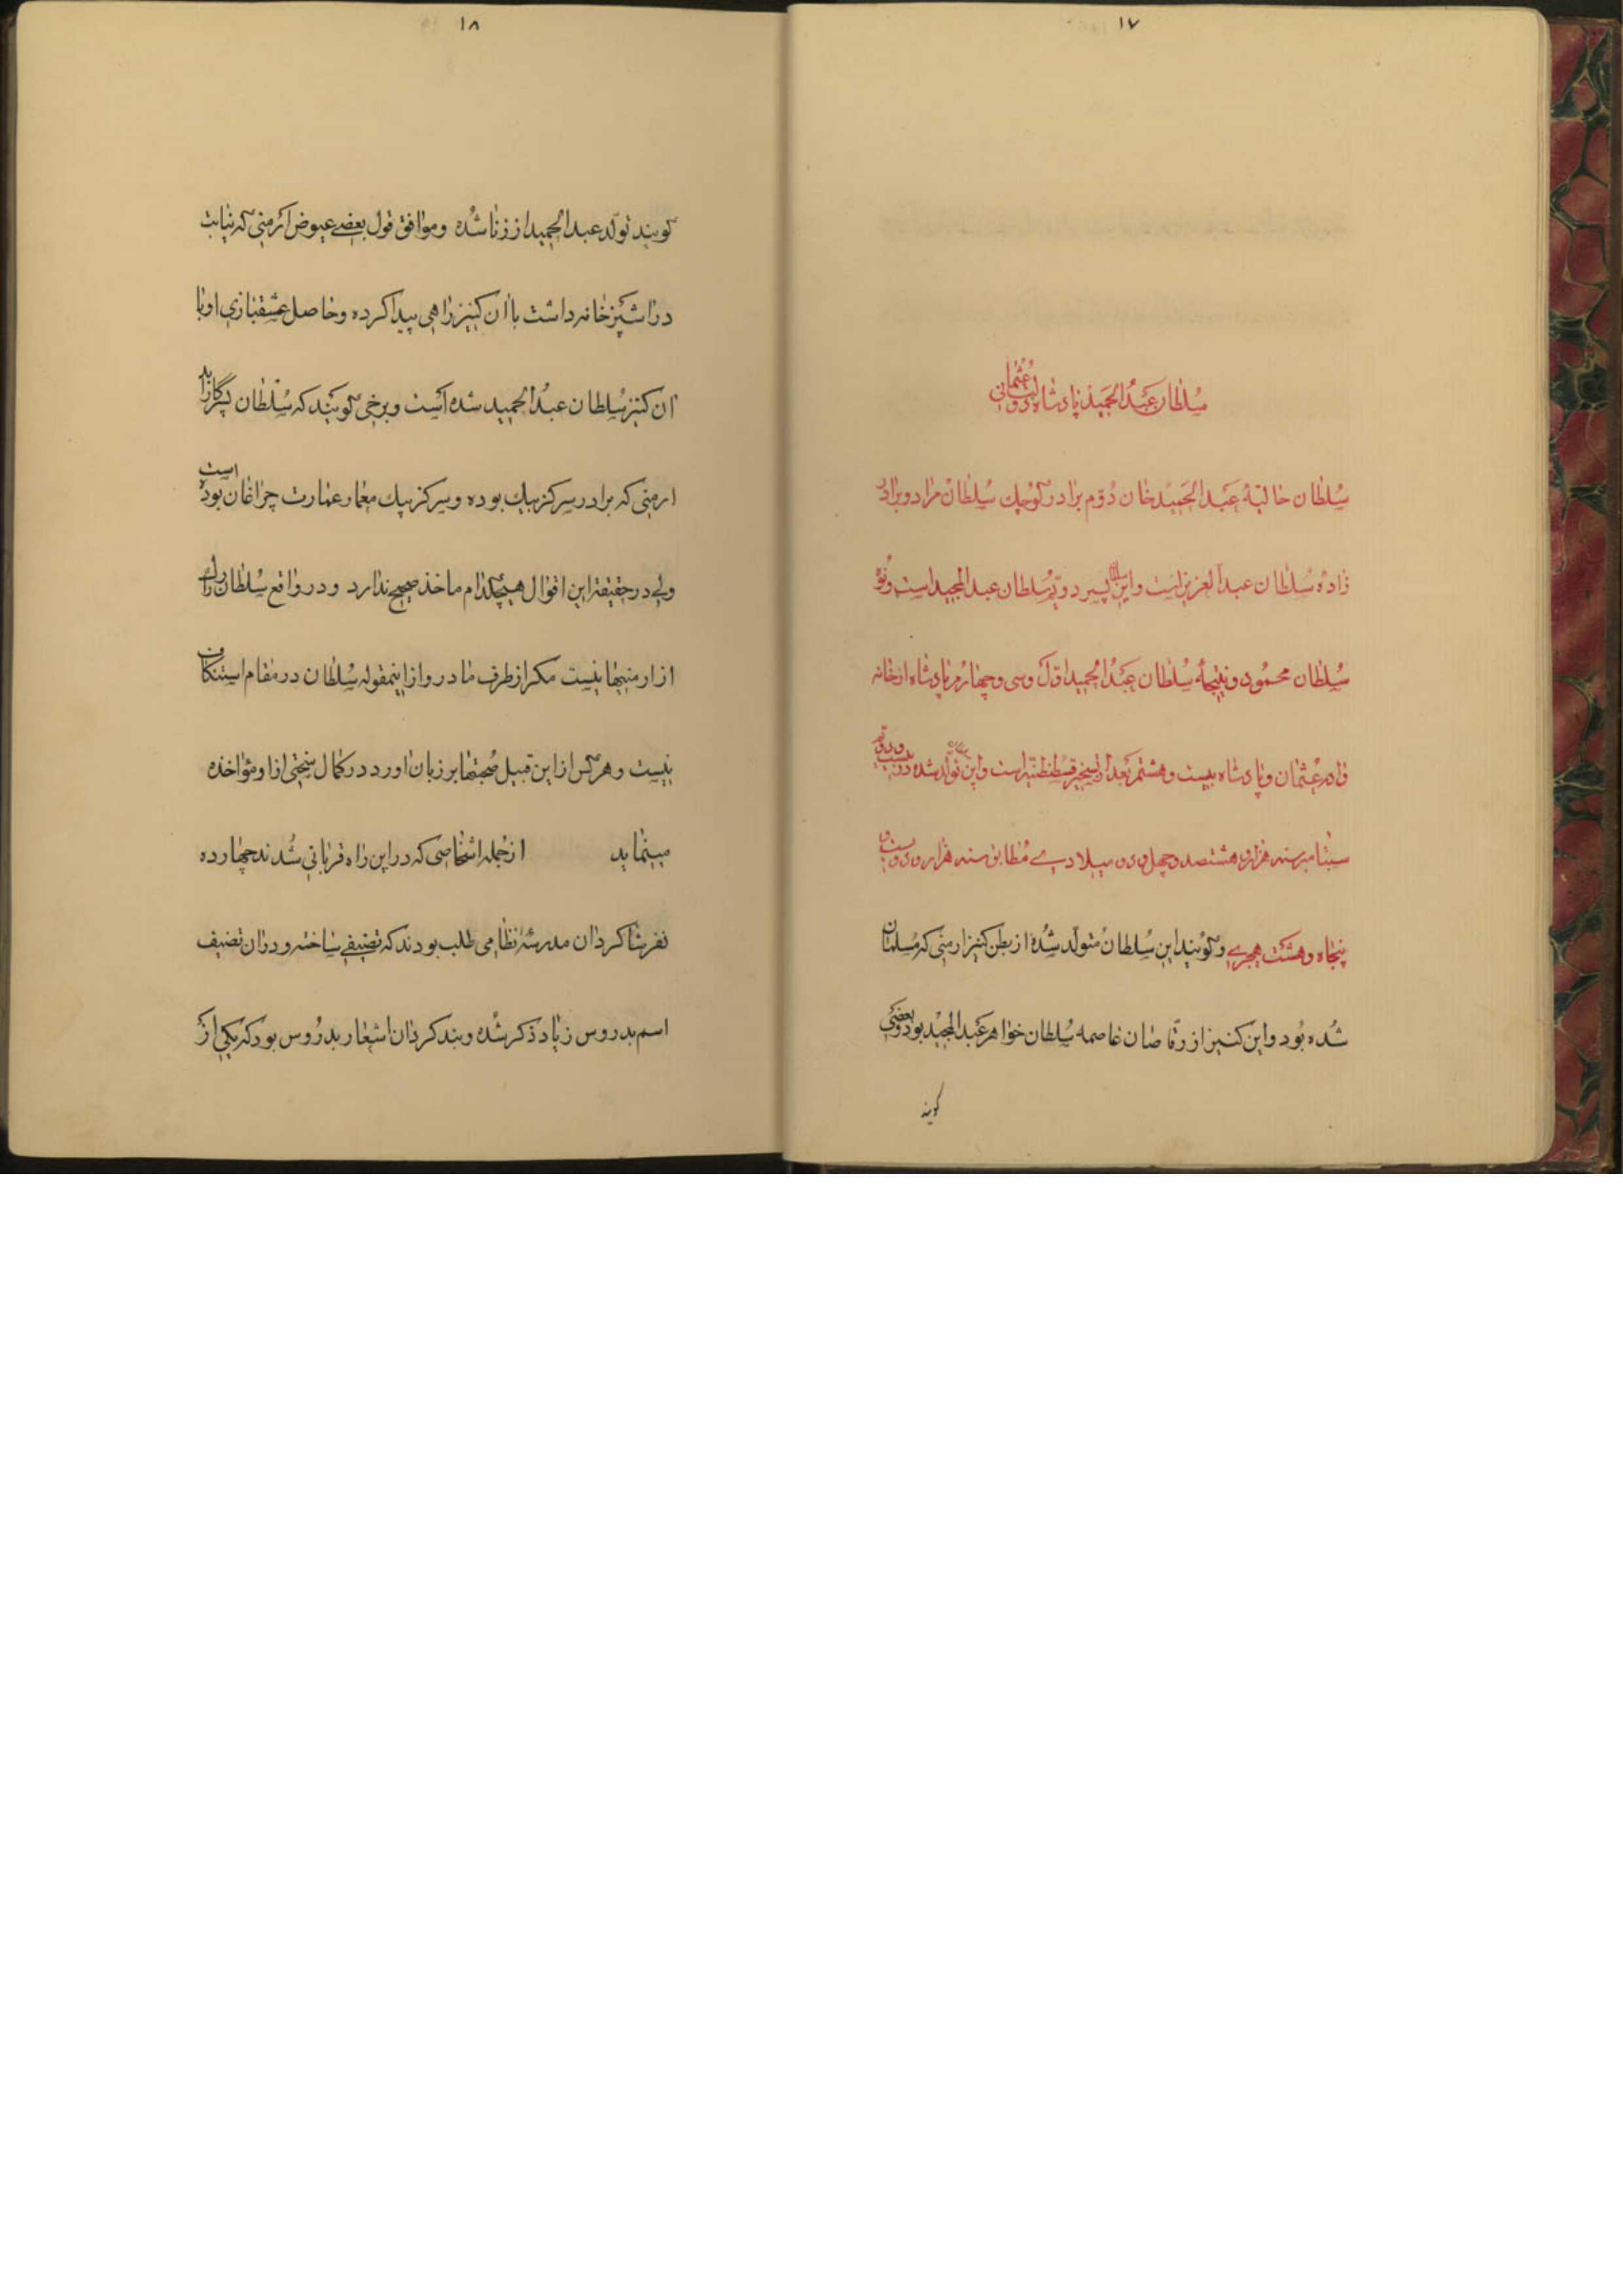 ۱۷
سُلطان عَبدُ الحَمید پادشاه دولت عُثمانی
سُلطان حالیّهٔ عَبدالحَمیدخان دُوّم برادر کوچک سُلطان مُراد و برادر
زادهٔ سُلطان عبدالعزیز است و این سلطان پسر دویّم سُلطان عبدالمجید است و نوهٔ
سُلطان محمُود و نتیجهٔ سُلطان عَبدُالحمید اوّل و سی و چهارُم پادشاه از خانه
وادهٔ عُثمان و پادشاه بیست و هشتم بَعد از تسخیر قسطنطنیّه است و این تولّد شده در بیست و دویّم
سبتامبر سنه هزار و هشتصد و چهل و دو میلادی مُطابق سنه هزار و دویست و
پنجاه و هشت هجری و گویند این سُلطان مُتولّد شُده از بطن کنیز ارمنی که مُسلمان
شُده بُود و این کنیز از رقّاصان عاصمه سُلطان خواهر عَبدالمجید بود و بعضی
گویند
۱۸
گویند تولّد عبدالحمید از زنا شُده و موافق قول بعضی عیوض ارمنی که نیابت
در اشپزخانه داشت با ان کنیز راهی پیدا کرده و حاصل عشقبازی او با
ان کنیز سُلطان عبدُالحمید شده است و برخی گویند که سُلطان پسر گارابد
ارمنی که برادر سرکز بیک بوده و سرکز بیک معمار عمارت چراغان بوده است
ولی در حقیقت این اقوال هیچکدام ماخذ صحیح ندارد و در واقع سُلطان را رگ
از ارمنیها نیست مکر از طرف مادر و از اینمقوله سُلطان در مقام استنکاف
نیست و هر کس از این قبیل صُحبتها بر زبان اورد در کمال سختی از او مؤاخذه
مینماید از جُمله اشخاصی که در این راه قربانی شُدند چهارده
نفر شاکردان مدرسهٔ نظامی طلب بودند که تصنیفی ساخته و در ان تصنیف
اسم بدروس زیاد ذکر شُده و بند کردان اشعار بدرُوس بود که یکی از